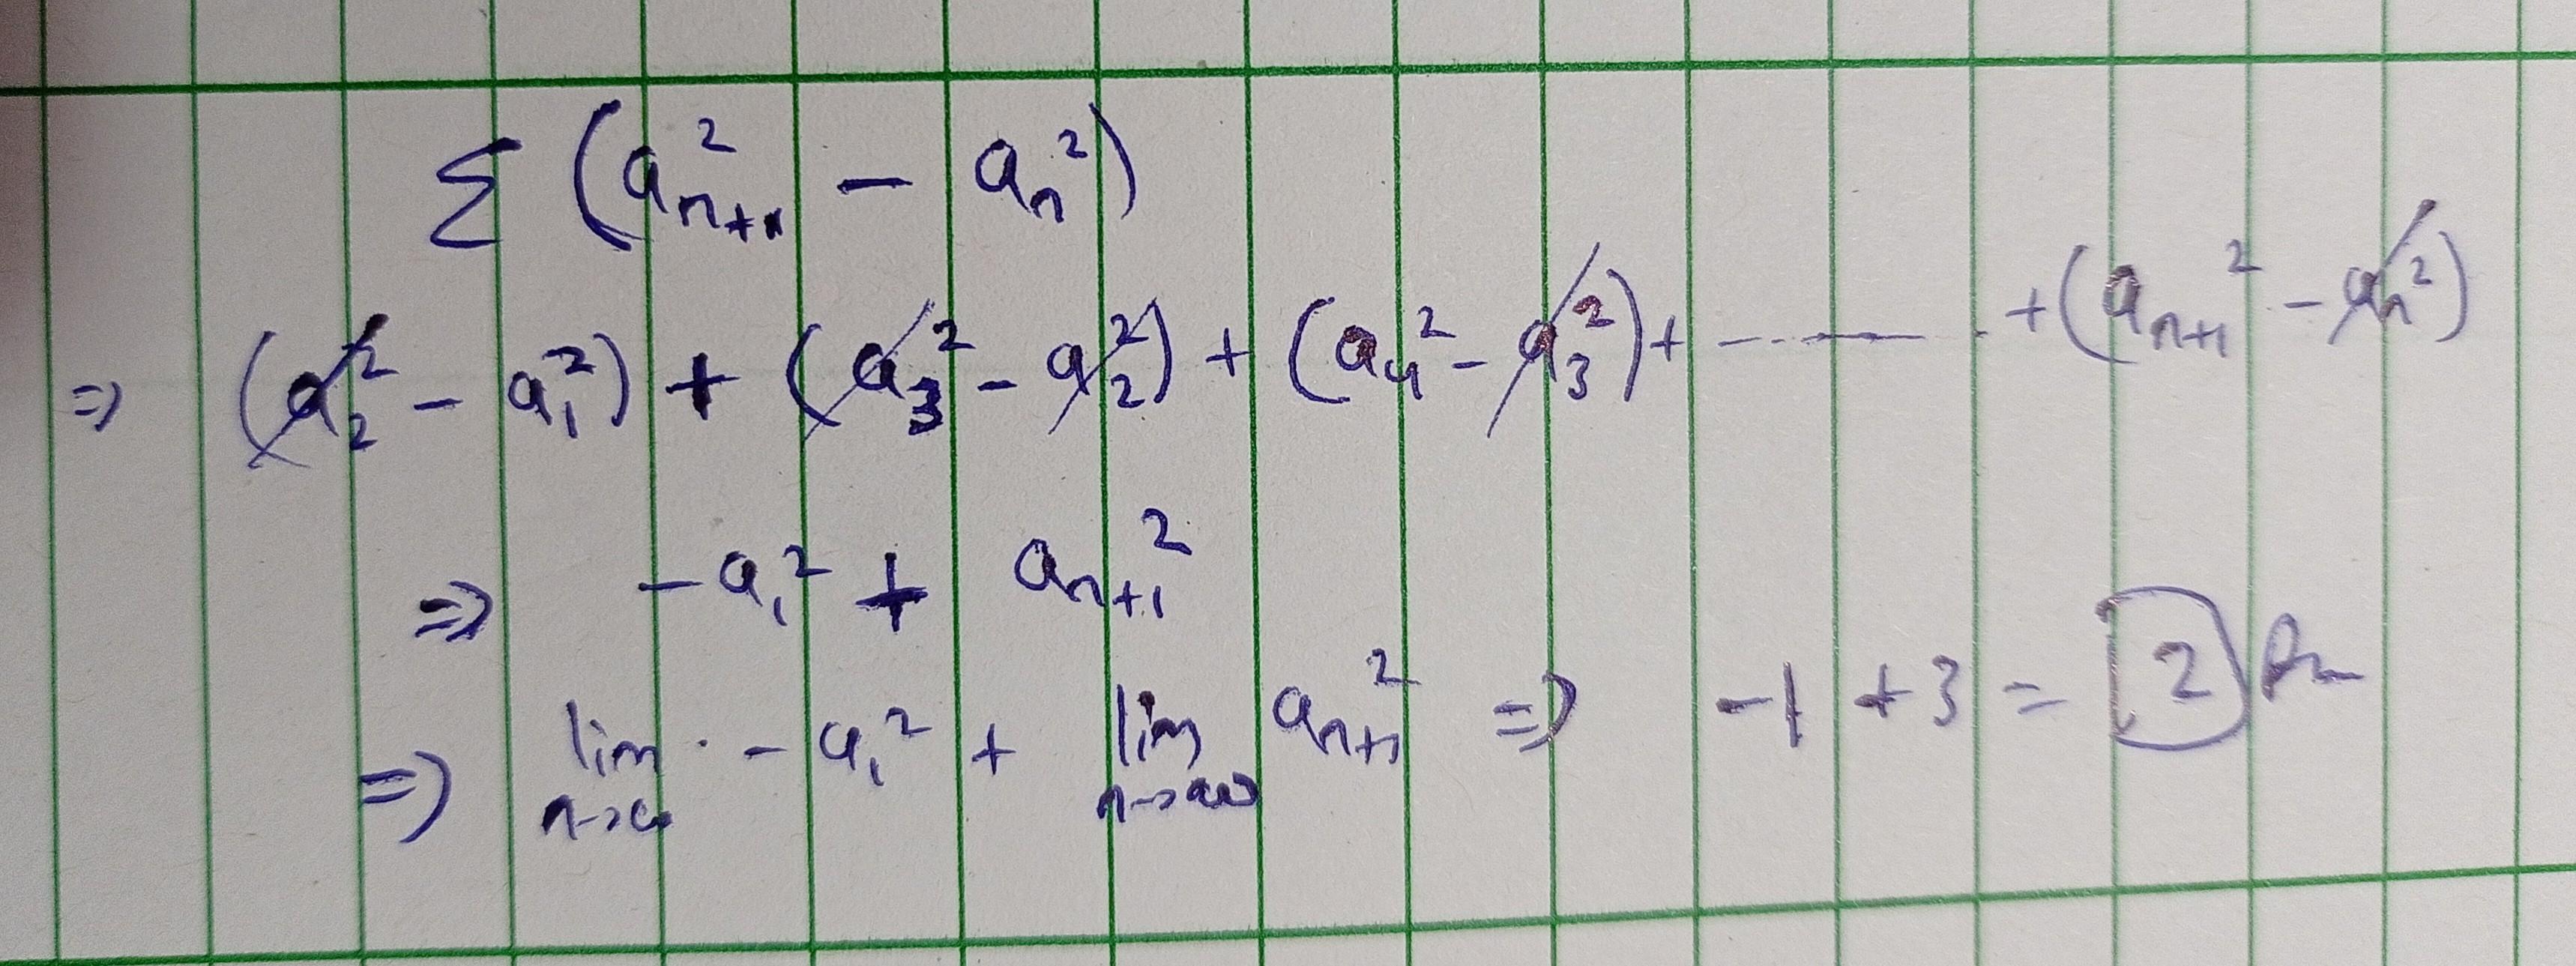 Σ (a²ₙ₊₁ − aₙ²)
⇒ (a₂² − a₁²) + (a₃² − a₂²) + (a₄² − a₃²) + -------- + (aₙ₊₁² − aₙ²)
⇒ −a₁² + aₙ₊₁²
⇒ lim n→∞ · −a₁² + lim n→∞ aₙ₊₁² ⇒ −1 + 3 = 2